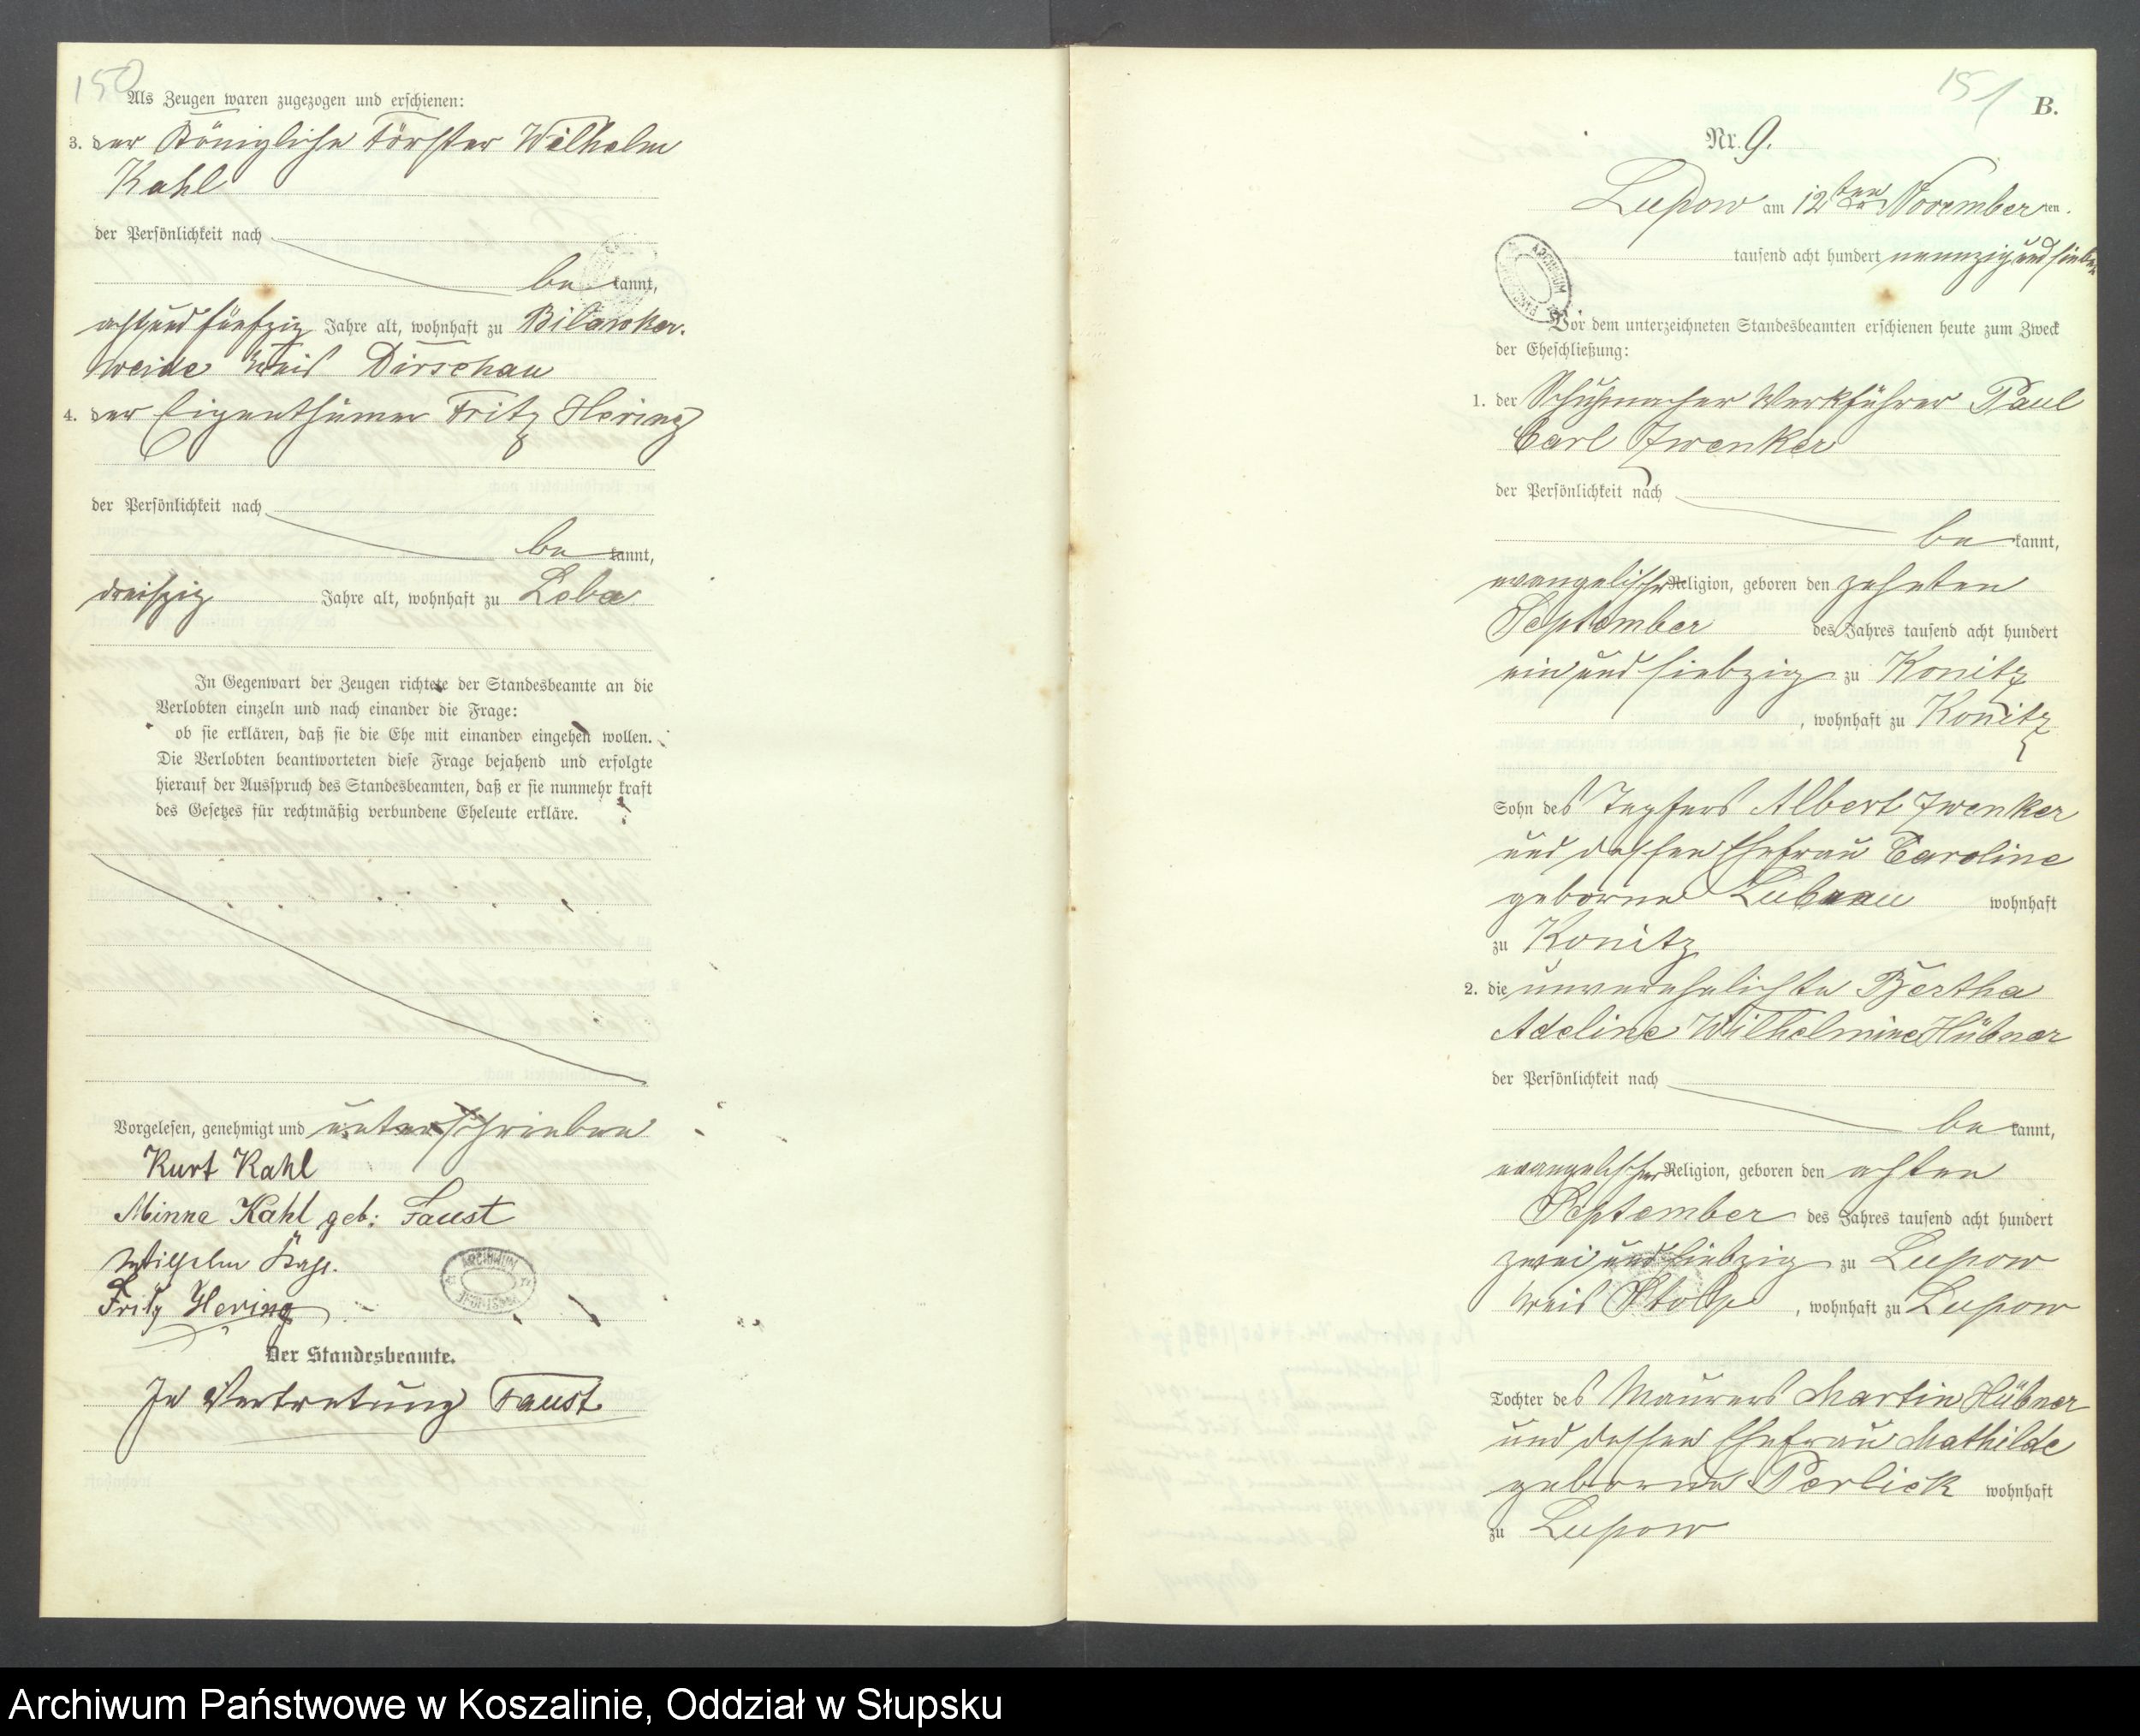 150
Als Zeugen waren zugezogen und erschienen:
3. der Königliche Förster Wilhelm
Kahl
der Persönlichkeit nach
be kannt,
acht und fünfzig Jahre alt, wohnhaft zu Bilawker-
weide Kreis Dirschau
4. der Eigenthümer Fritz Hering
der Persönlichkeit nach
be kannt,
dreißig Jahre alt, wohnhaft zu Leba
In Gegenwart der Zeugen richtete der Standesbeamte an die
Verlobten einzeln und nach einander die Frage:
ob sie erklären, daß sie die Ehe mit einander eingehen wollen.
Die Verlobten beantworteten diese Frage bejahend und erfolgte
hierauf der Ausspruch des Standesbeamten, daß er sie nunmehr kraft
des Gesetzes für rechtmäßig verbundene Eheleute erkläre.
Vorgelesen, genehmigt und unterschrieben
Kurt Kahl
Minna Kahl geb: Faust
Wilhelm Kahl.
Fritz Hering
ARCHIWUM
Der Standesbeamte.
In Vertretung Faust.
151
B.
Nr. 9.
Lupow am 12ten November ten
tausend acht hundert neunzig und sieben
ARCHIWUM
Vor dem unterzeichneten Standesbeamten erschienen heute zum Zweck
der Eheschließung:
1. der Schuhmacher Werkführer Paul
Carl Zwenker
der Persönlichkeit nach
be kannt,
evangelischer Religion, geboren den zehnten
September des Jahres tausend acht hundert
ein und siebzig zu Konitz
, wohnhaft zu Konitz
Sohn des Töpfers Albert Zwenker
und dessen Ehefrau Caroline
geborne Lubnau wohnhaft
zu Konitz
2. die unverehelichte Bertha
Adeline Wilhelmine Hübner
der Persönlichkeit nach
be kannt,
evangelischer Religion, geboren den achten
September des Jahres tausend acht hundert
zwei und siebzig zu Lupow
Kreis Stolp, wohnhaft zu Lupow
Tochter des Maurers Martin Hübner
und dessen Ehefrau Mathilde
geborene Perlick wohnhaft
zu Lupow
Archiwum Państwowe w Koszalinie, Oddział w Słupsku